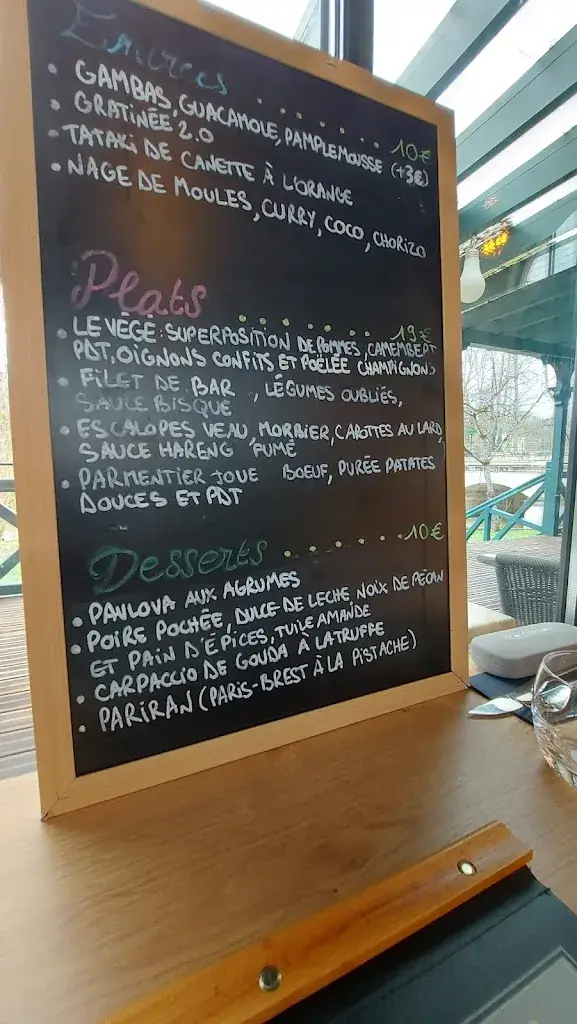 Entrées . . . . . . . 10€
• GAMBAS, GUACAMOLE, PAMPLEMOUSSE (+3€)
• GRATINÉE 2.0
• TATAKI DE CANETTE À L'ORANGE
• NAGE DE MOULES, CURRY, COCO, CHORIZO
Plats . . . . . . . 19€
• LE VÉGÉ: SUPERPOSITION DE POMMES, CAMEMBERT
PDT, OIGNONS CONFITS ET POÊLÉE CHAMPIGNONS
• FILET DE BAR , LÉGUMES OUBLIÉS,
SAUCE BISQUE
• ESCALOPES VEAU, MORBIER, CAROTTES AU LARD,
SAUCE HARENG FUMÉ
• PARMENTIER JOUE BOEUF, PURÉE PATATES
DOUCES ET PDT
Desserts . . . . . . . 10€
• PAVLOVA AUX AGRUMES
• POIRE POCHÉE, DULCE DE LECHE NOIX DE PÉCAN
ET PAIN D'ÉPICES, TUILE AMANDE
• CARPACCIO DE GOUDA À LA TRUFFE
• PARIRAN (PARIS-BREST À LA PISTACHE)